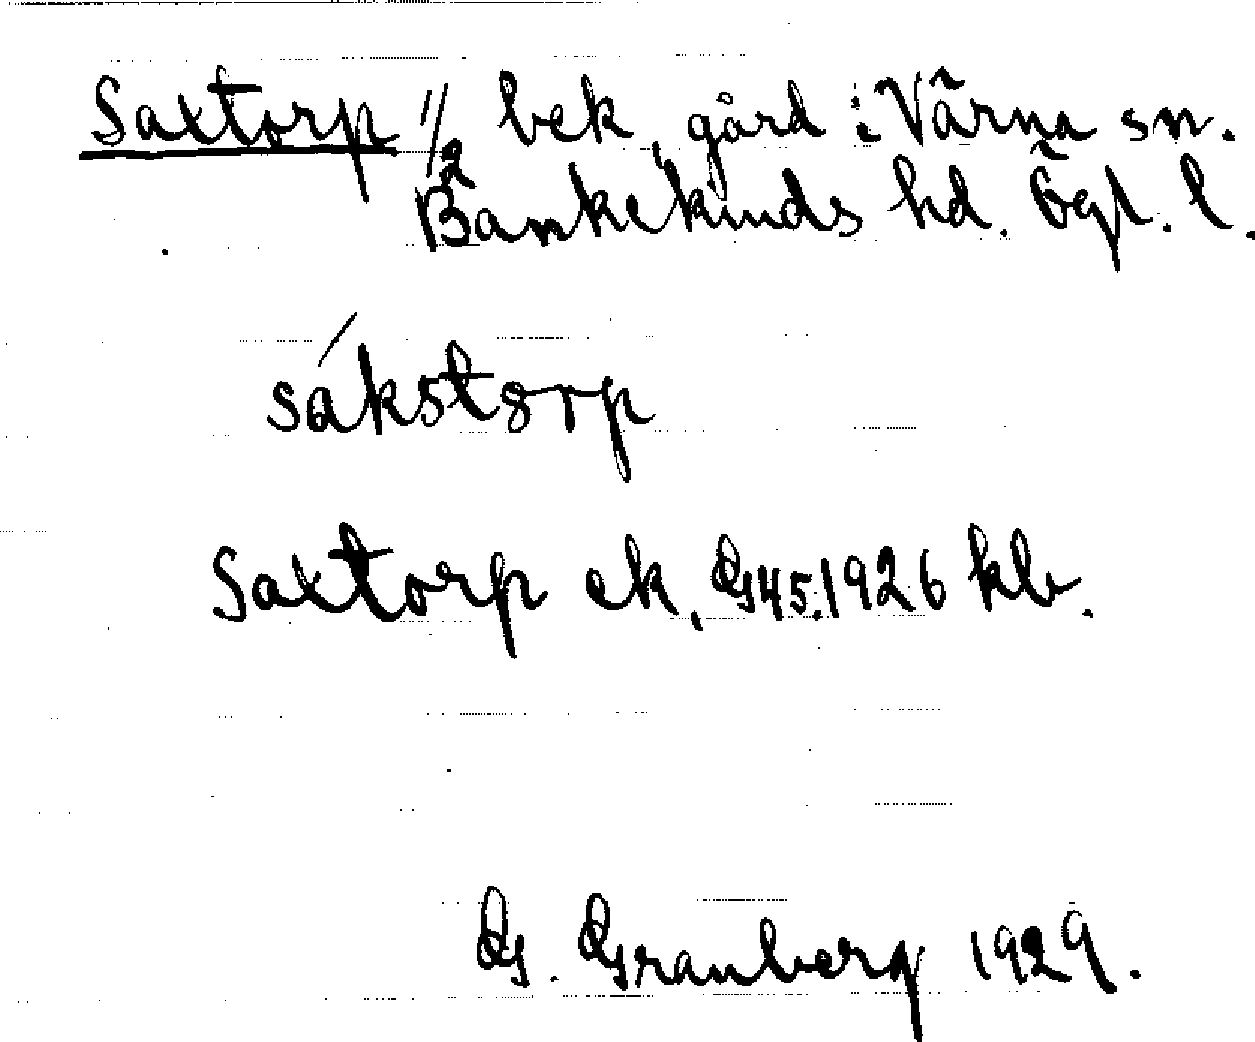 Saxtorp 1/2 bek, gård i Värna sn.
Bankekinds hd. Ögl. l.
sákstorp
Saxtorp ek. G45.1926 kb.
G. Granberg 1929.